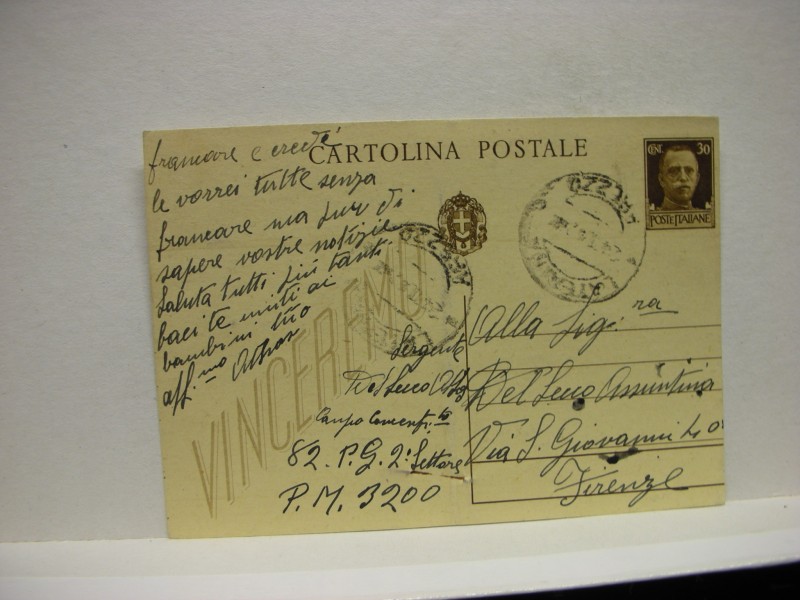 CARTOLINA POSTALE
CENT. 30
POSTE ITALIANE
VINCEREMO
francare e
le vorrei tutte senza
francare ma pur di
sapere vostre notizie
Saluta tutti più tanti
baci te uniti ai
bambini tuo
aff.mo Athos
Sergente
Del Secco
Campo Concentr.to
82. P.G. 2° Settore
P.M. 3200
Alla Sig.ra
Del Secco Assuntina
Via S. Giovanni
Firenze
AREZZO
AREZZO